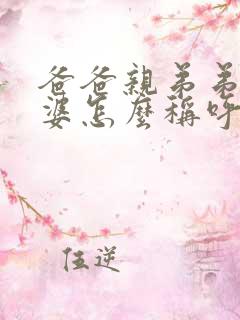 爸爸親弟弟
婆怎麼稱呼
伍逆